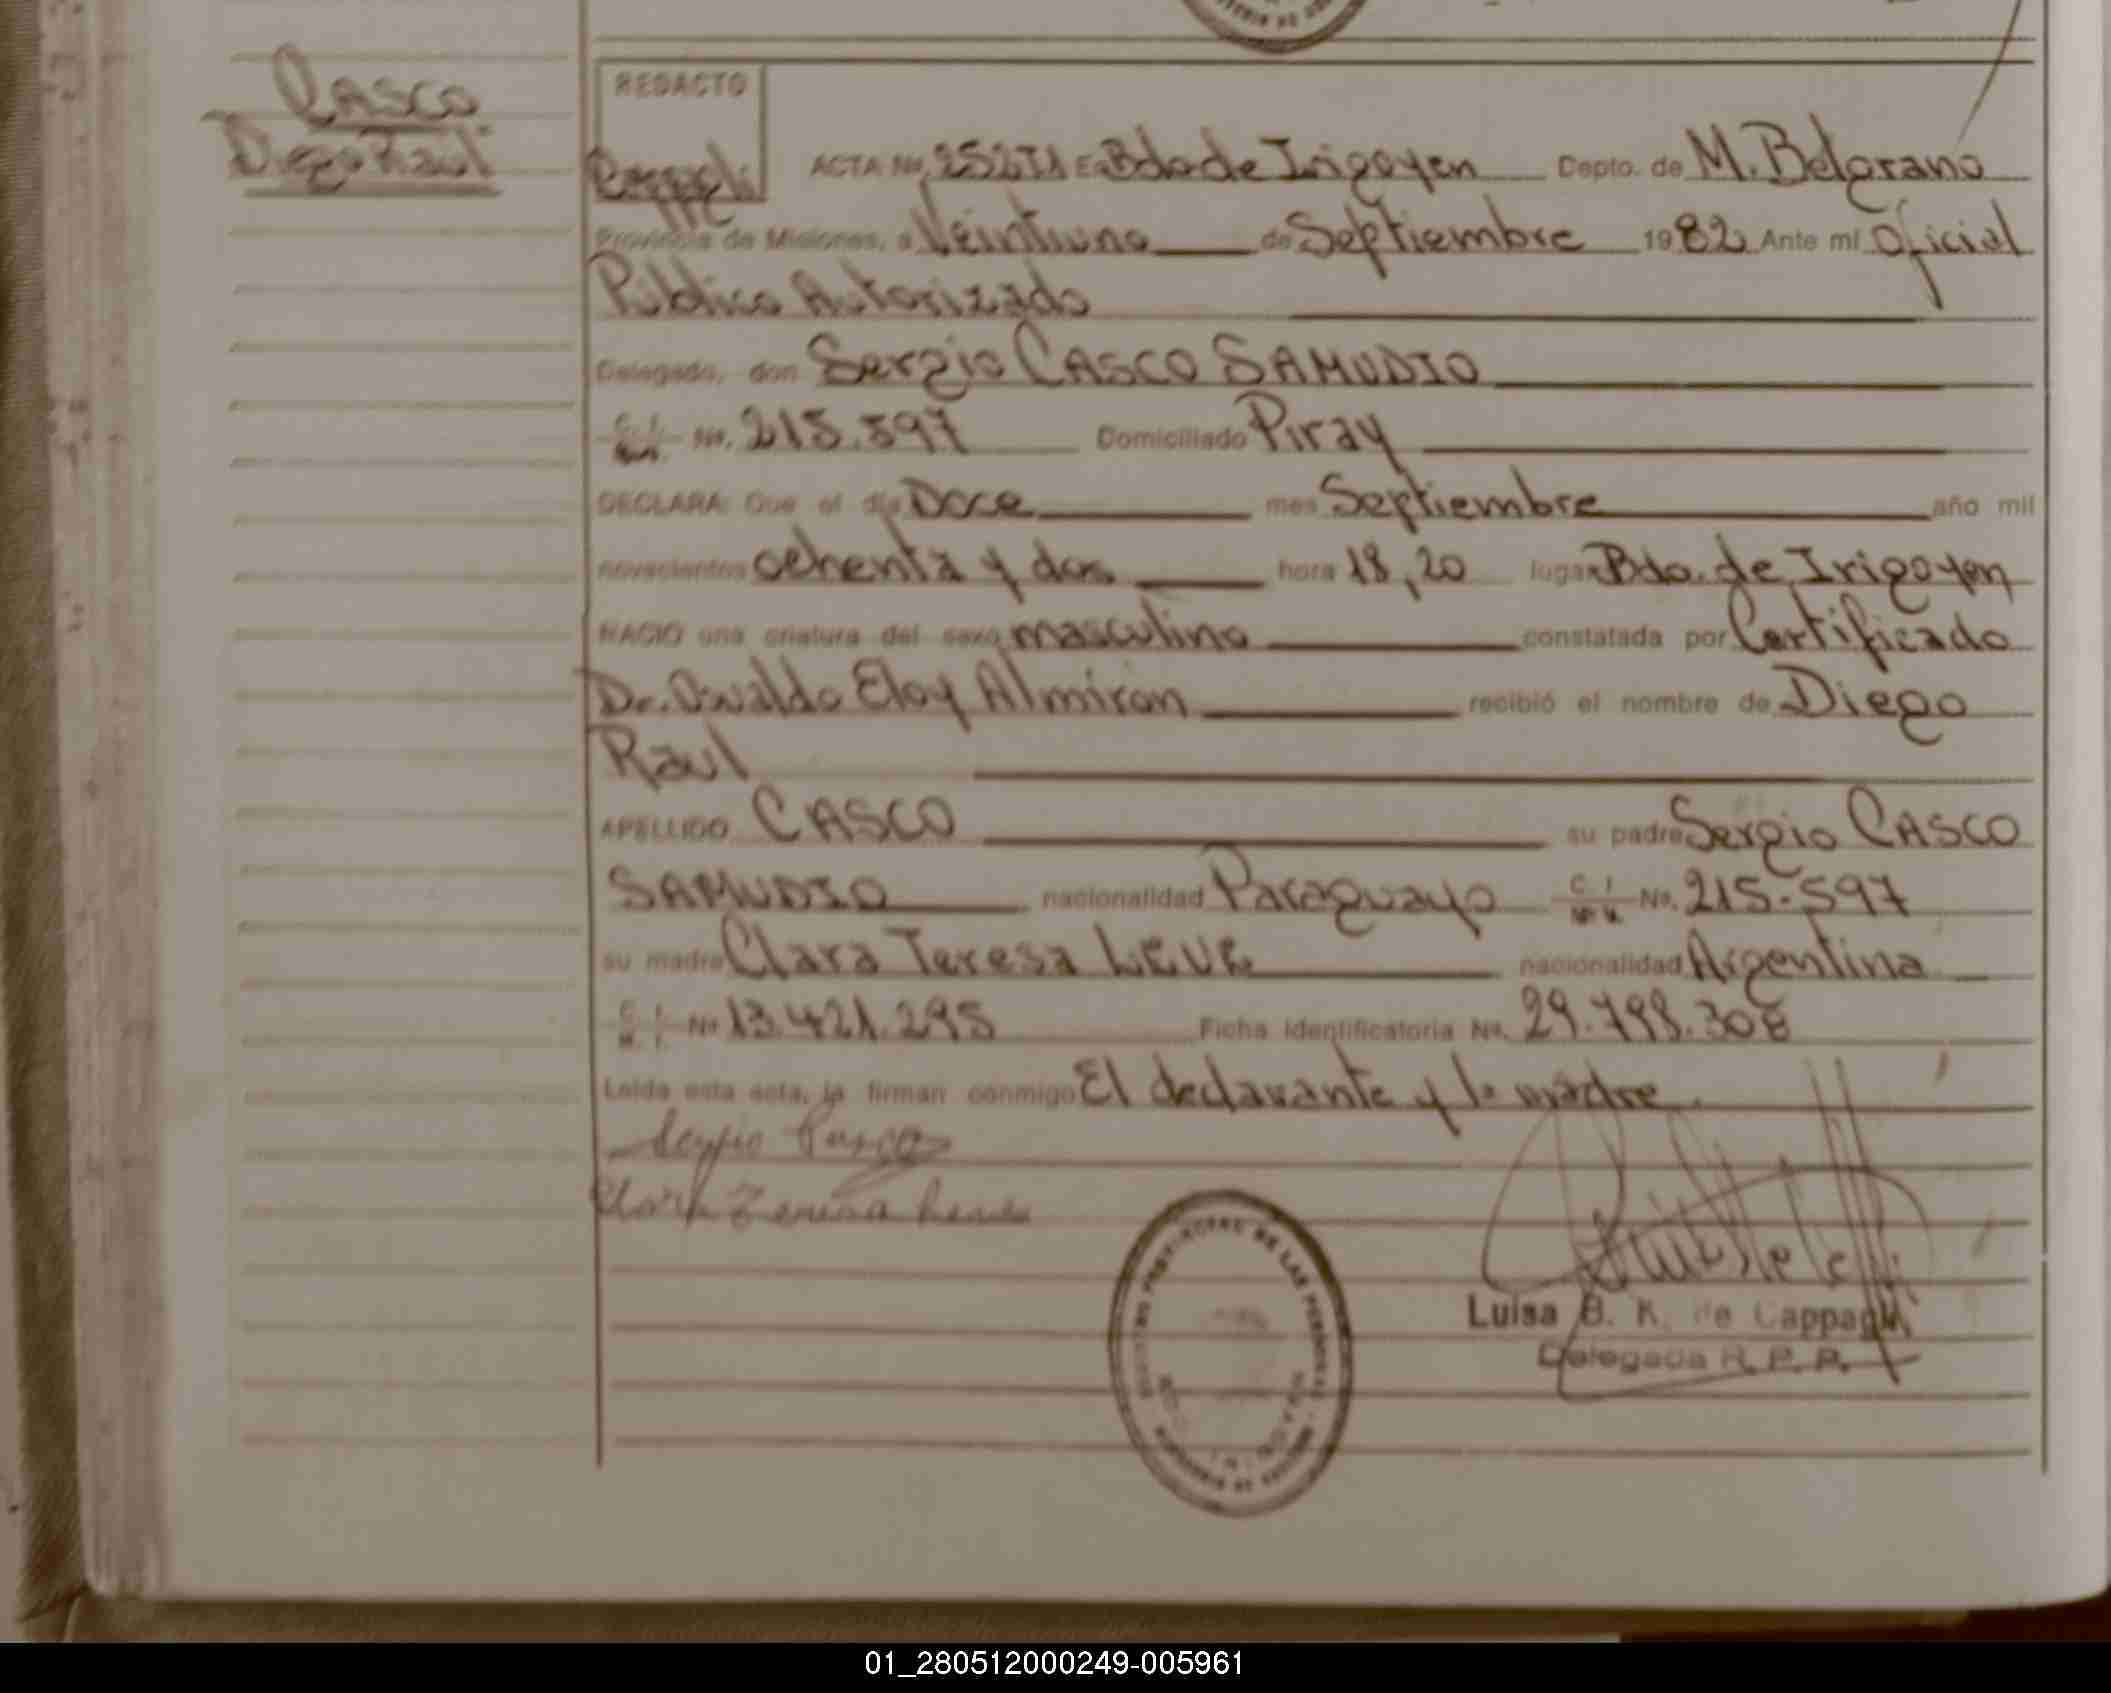 CASCO
Diego Raul
REDACTO
ACTA No. E Bdo de Irigoyen Depto. de M. Belgrano
Provincia de Misiones, a Veintiuno de Septiembre 1982 Ante mí Oficial
Público Autorizado
Delegado, don Sergio CASCO SAMUDIO
C. I. No. 215.597 Domiciliado Piray
DECLARA: Que el día Doce mes Septiembre año mil
novecientos ochenta y dos hora 18,20 lugar Bdo. de Irigoyen
NACIO una criatura del sexo masculino constatada por Certificado
Dr. Osvaldo Eloy Almiron recibió el nombre de Diego
Raul
APELLIDO CASCO su padre Sergio CASCO
SAMUDIO nacionalidad Paraguayo C. I. No. 215.597
su madre Clara Teresa nacionalidad Argentina
C. I. M. I. No 13.421.295 Ficha Identificatoria No. 29.798.308
Leida esta acta, la firman conmigo El declarante y la madre.
Sergio Casco
Clara Teresa
Luisa B. K. de Cappagli
Delegada R. P. P.
01_280512000249-005961